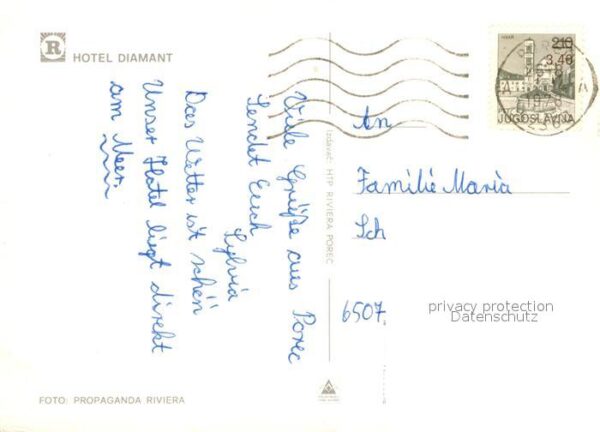 R HOTEL DIAMANT
Viele Grüße aus Porec
Sendet Euch
Sylvia
Das Wetter ist schön
Unser Hotel liegt direkt
am Meer.
Izdavač: HTP RIVIERA POREC
HVAR
210
3,40
JUGOSLAVIJA
An
Familie Maria
Sch
6507
privacy protection
Datenschutz
FOTO: PROPAGANDA RIVIERA